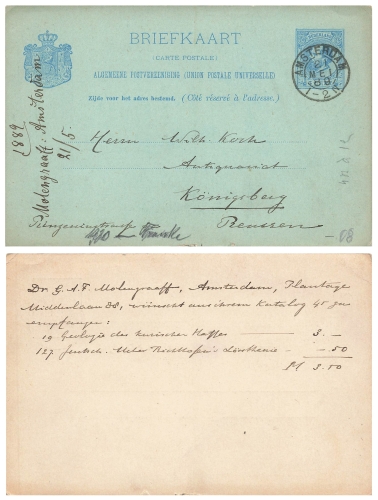 BRIEFKAART
(CARTE POSTALE)
ALGEMEENE POSTVEREENIGING (UNION POSTALE UNIVERSELLE)
Zijde voor het adres bestemd. (Côté réservé à l'adresse.)
AMSTERDAM
21
MEI
88
1-2N
Herrn Wilh. Koch
Antiquariat
Königsberg
Preussen
Molengraaff: Amsterdam
21/5.
Dr. G. A. F. Molengraaff, Amsterdam, Plantage
Middenlaan 88, wünscht aus Ihrem Katalog 45 zu
empfangen:
19 Geologie des kurischen Haffes — 3.—
127 Jentzsch. Ueber — .50
M 3.50